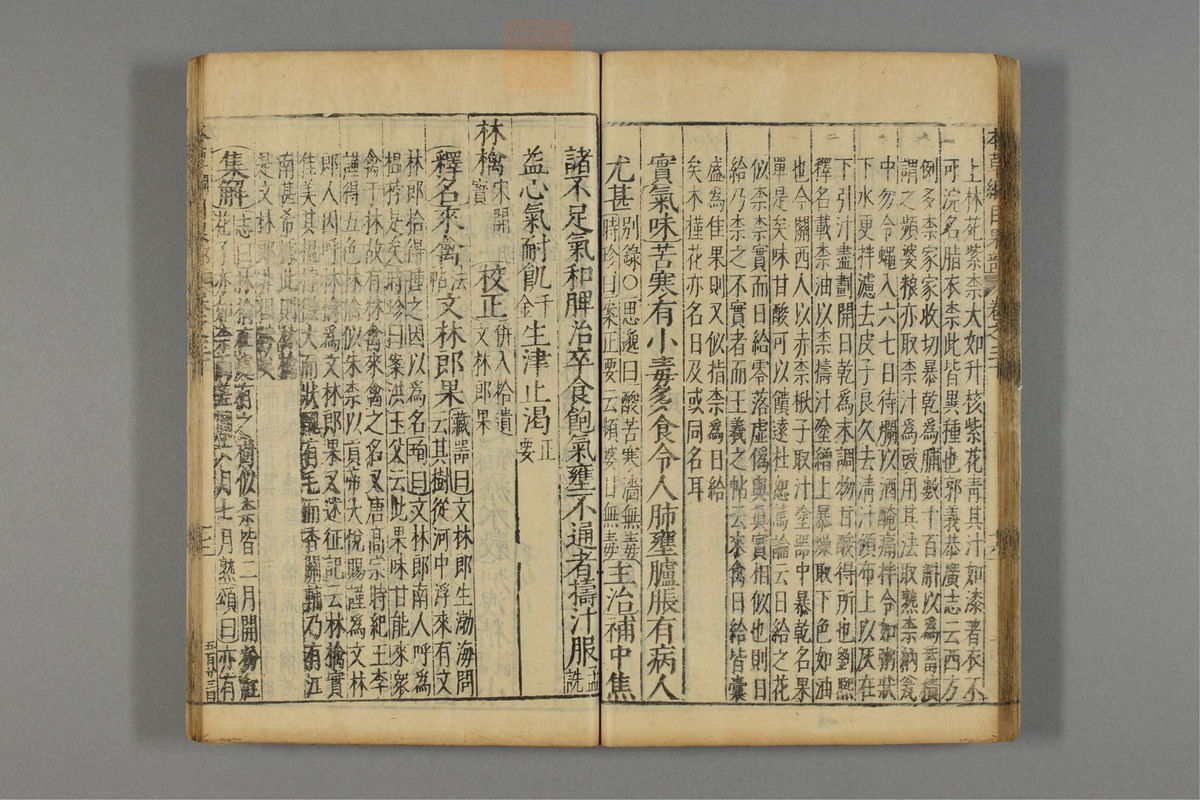 上林苑紫柰大如升核紫花青其汁如漆著衣不
可浣名脂衣柰此皆異種也郭義恭廣志云西方
例多柰家家收切暴乾為脯數十百斛以為蓄積
謂之頻婆粮亦取柰汁為豉用其法取熟柰納瓮
中勿令蠅入六七日待爛以酒醃痛拌令如粥狀
下水更拌濾去皮子良久去清汁傾布上以灰在
下引汁盡劃開日乾為末調物甘酸得所也劉熙
釋名載柰油以柰擣汁塗繒上暴燥取下色如油
也今關西人以赤柰楸子取汁塗器中暴乾名果
單是矣味甘酸可以饋遠杜恕篤論云日給之花
似柰柰實而日給零落虛偽與真實相似也則日
給乃柰之不實者而王羲之帖云來禽日給皆囊
盛為佳果則又似指柰為日給
矣木槿花亦名日及或同名耳
實氣味苦寒有小毒多食令人肺壅臚脹有病人
尤甚別錄○思邈曰酸苦寒濇無毒
時珍曰案正要云頻婆甘無毒主治補中焦
諸不足氣和脾治卒食飽氣壅不通者擣汁服孟詵
益心氣耐飢千金生津止渴正要
林檎宋開寶校正併入拾遺
文林郎果
釋名來禽法帖文林郎果藏器曰文林郎生渤海間
云其樹從河中浮來有文
林郎拾得種之因以為名珣曰文林郎南人呼為
榅桲是矣時珍曰案洪玉父云此果味甘能來衆
禽于林故有林禽來禽之名又唐高宗時紀王李
謹得五色林檎似朱柰以貢帝大悅賜謹為文林
郎人因呼林檎為文林郎果又述征記云林檎實
佳美其榅桲微大而狀醜有毛而香關輔乃有江
南甚希據此則林檎
是文林郎非榅桲矣
集解志曰林檎在處有之樹似柰皆二月開粉紅
花子亦如柰七月熟頌曰亦有